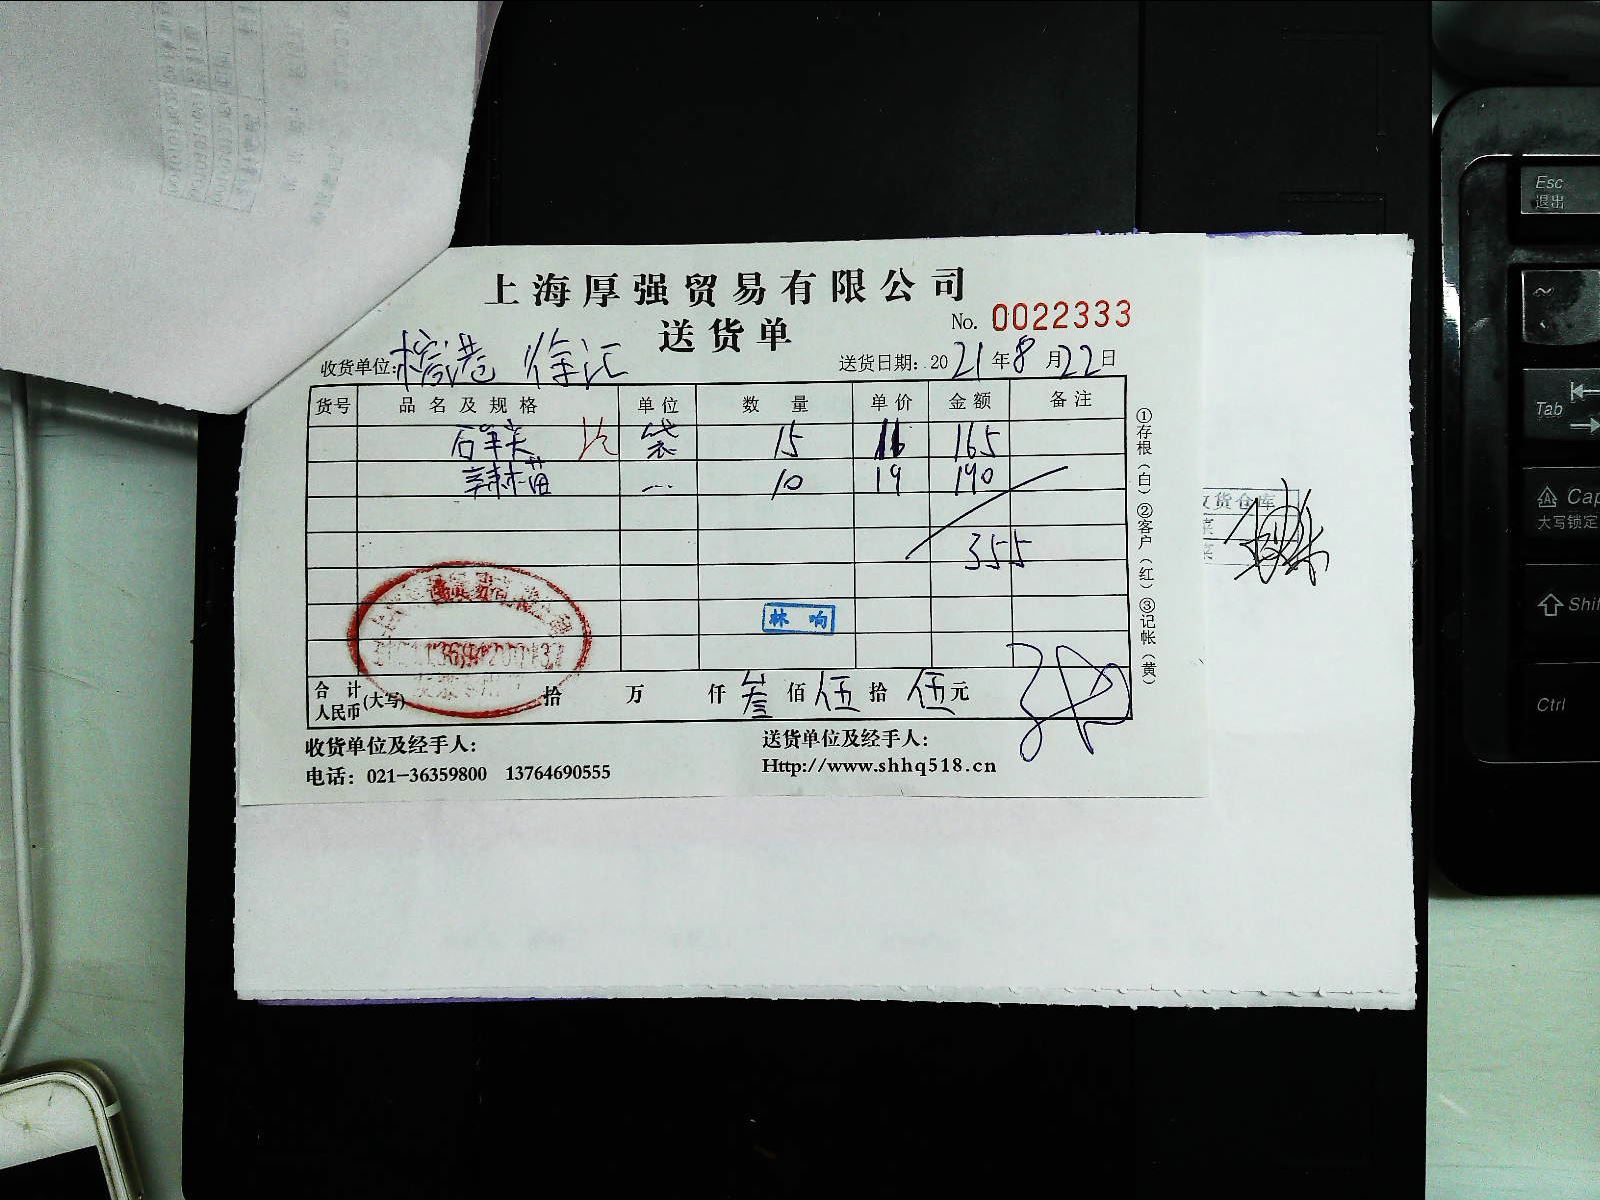 上海厚强贸易有限公司
送货单
No. 0022333
收货单位: 徐汇
送货日期: 2021年8月22日
货号 品名及规格 单位 数量 单价 金额 备注
袋 15 11 165
辣椒苗 10 19 190
355
林响
合计人民币(大写) 拾 万 仟 叁 佰 伍 拾 伍 元
收货单位及经手人:
送货单位及经手人:
电话: 021-36359800 13764690555
Http://www.shhq518.cn
①存根(白)②客户(红)③记帐(黄)
货仓库
Esc
退出
Tab
Cap
大写锁定
Shif
Ctrl